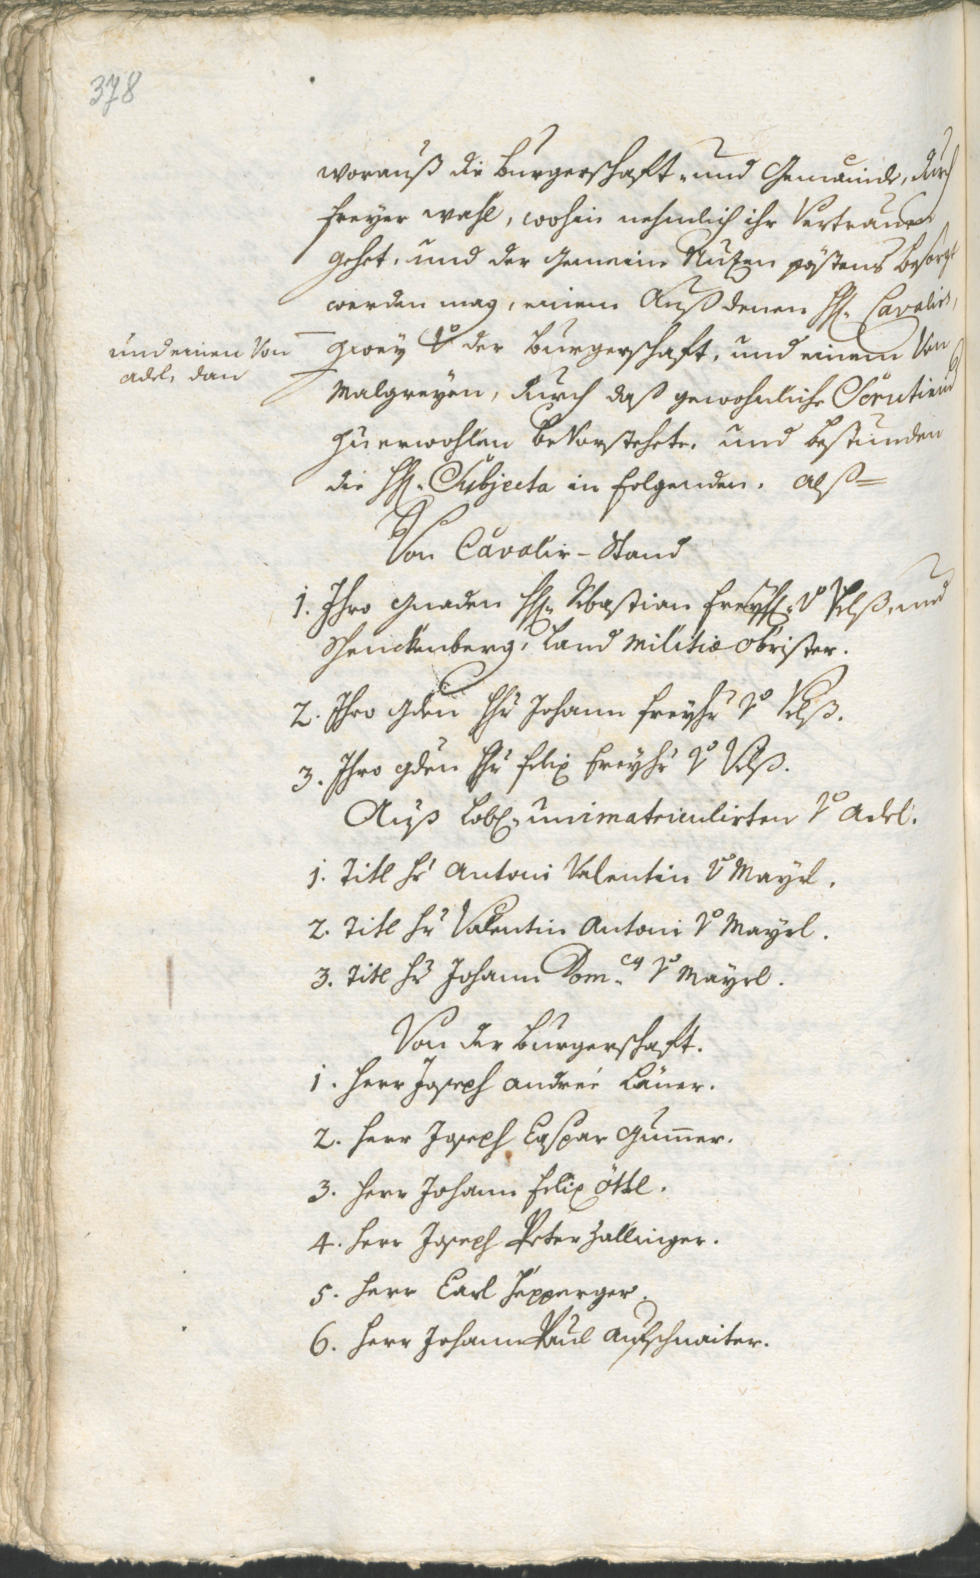 378
worauß die Burgerschafft- und Gemainde, durch
freyer wahl, wohin nehmlich ihr Vertrauen
gehet, und der Gemeine Nuzen pöstens besorgt
werden mag, einem Auß denen Hh. Cavaliers,
und einen Von
adel, dan
zwey v der Burgerschafft, und einem Von
Malgreyen, durch daß gewohnliche Scrutinium
zuerwöhlen bevorstehete. und bestunden
die Hh. Subjecta in folgenden. alß=
Von Cavalir-Stand
1. Ihro Gnaden Hh. Sebastian Freyhh. v Velß, und
Schenckenberg, Land militiæ obrister.
2. Ihro Gden Hr Johann Freyhr v Velß.
3. Ihro Gden Hr Felix Freyhr v Velß.
Auß Lobl. unimatriculirten v Adel.
1. Titl Hr Antoni Valentin v Mayrl.
2. Titl Hr Valentin Antoni v Mayrl.
3. Titl Hr Johann Dom.cy v Mayrl.
Von der Burgerschafft.
1. Herr Joseph Andreé Läner.
2. Herr Joseph Caspar Gum̅er.
3. Herr Johann Felix Öttl.
4. Herr Joseph Peter Zallinger.
5. Herr Carl Hepperger.
6. Herr Johann Paul Aufschnaiter.